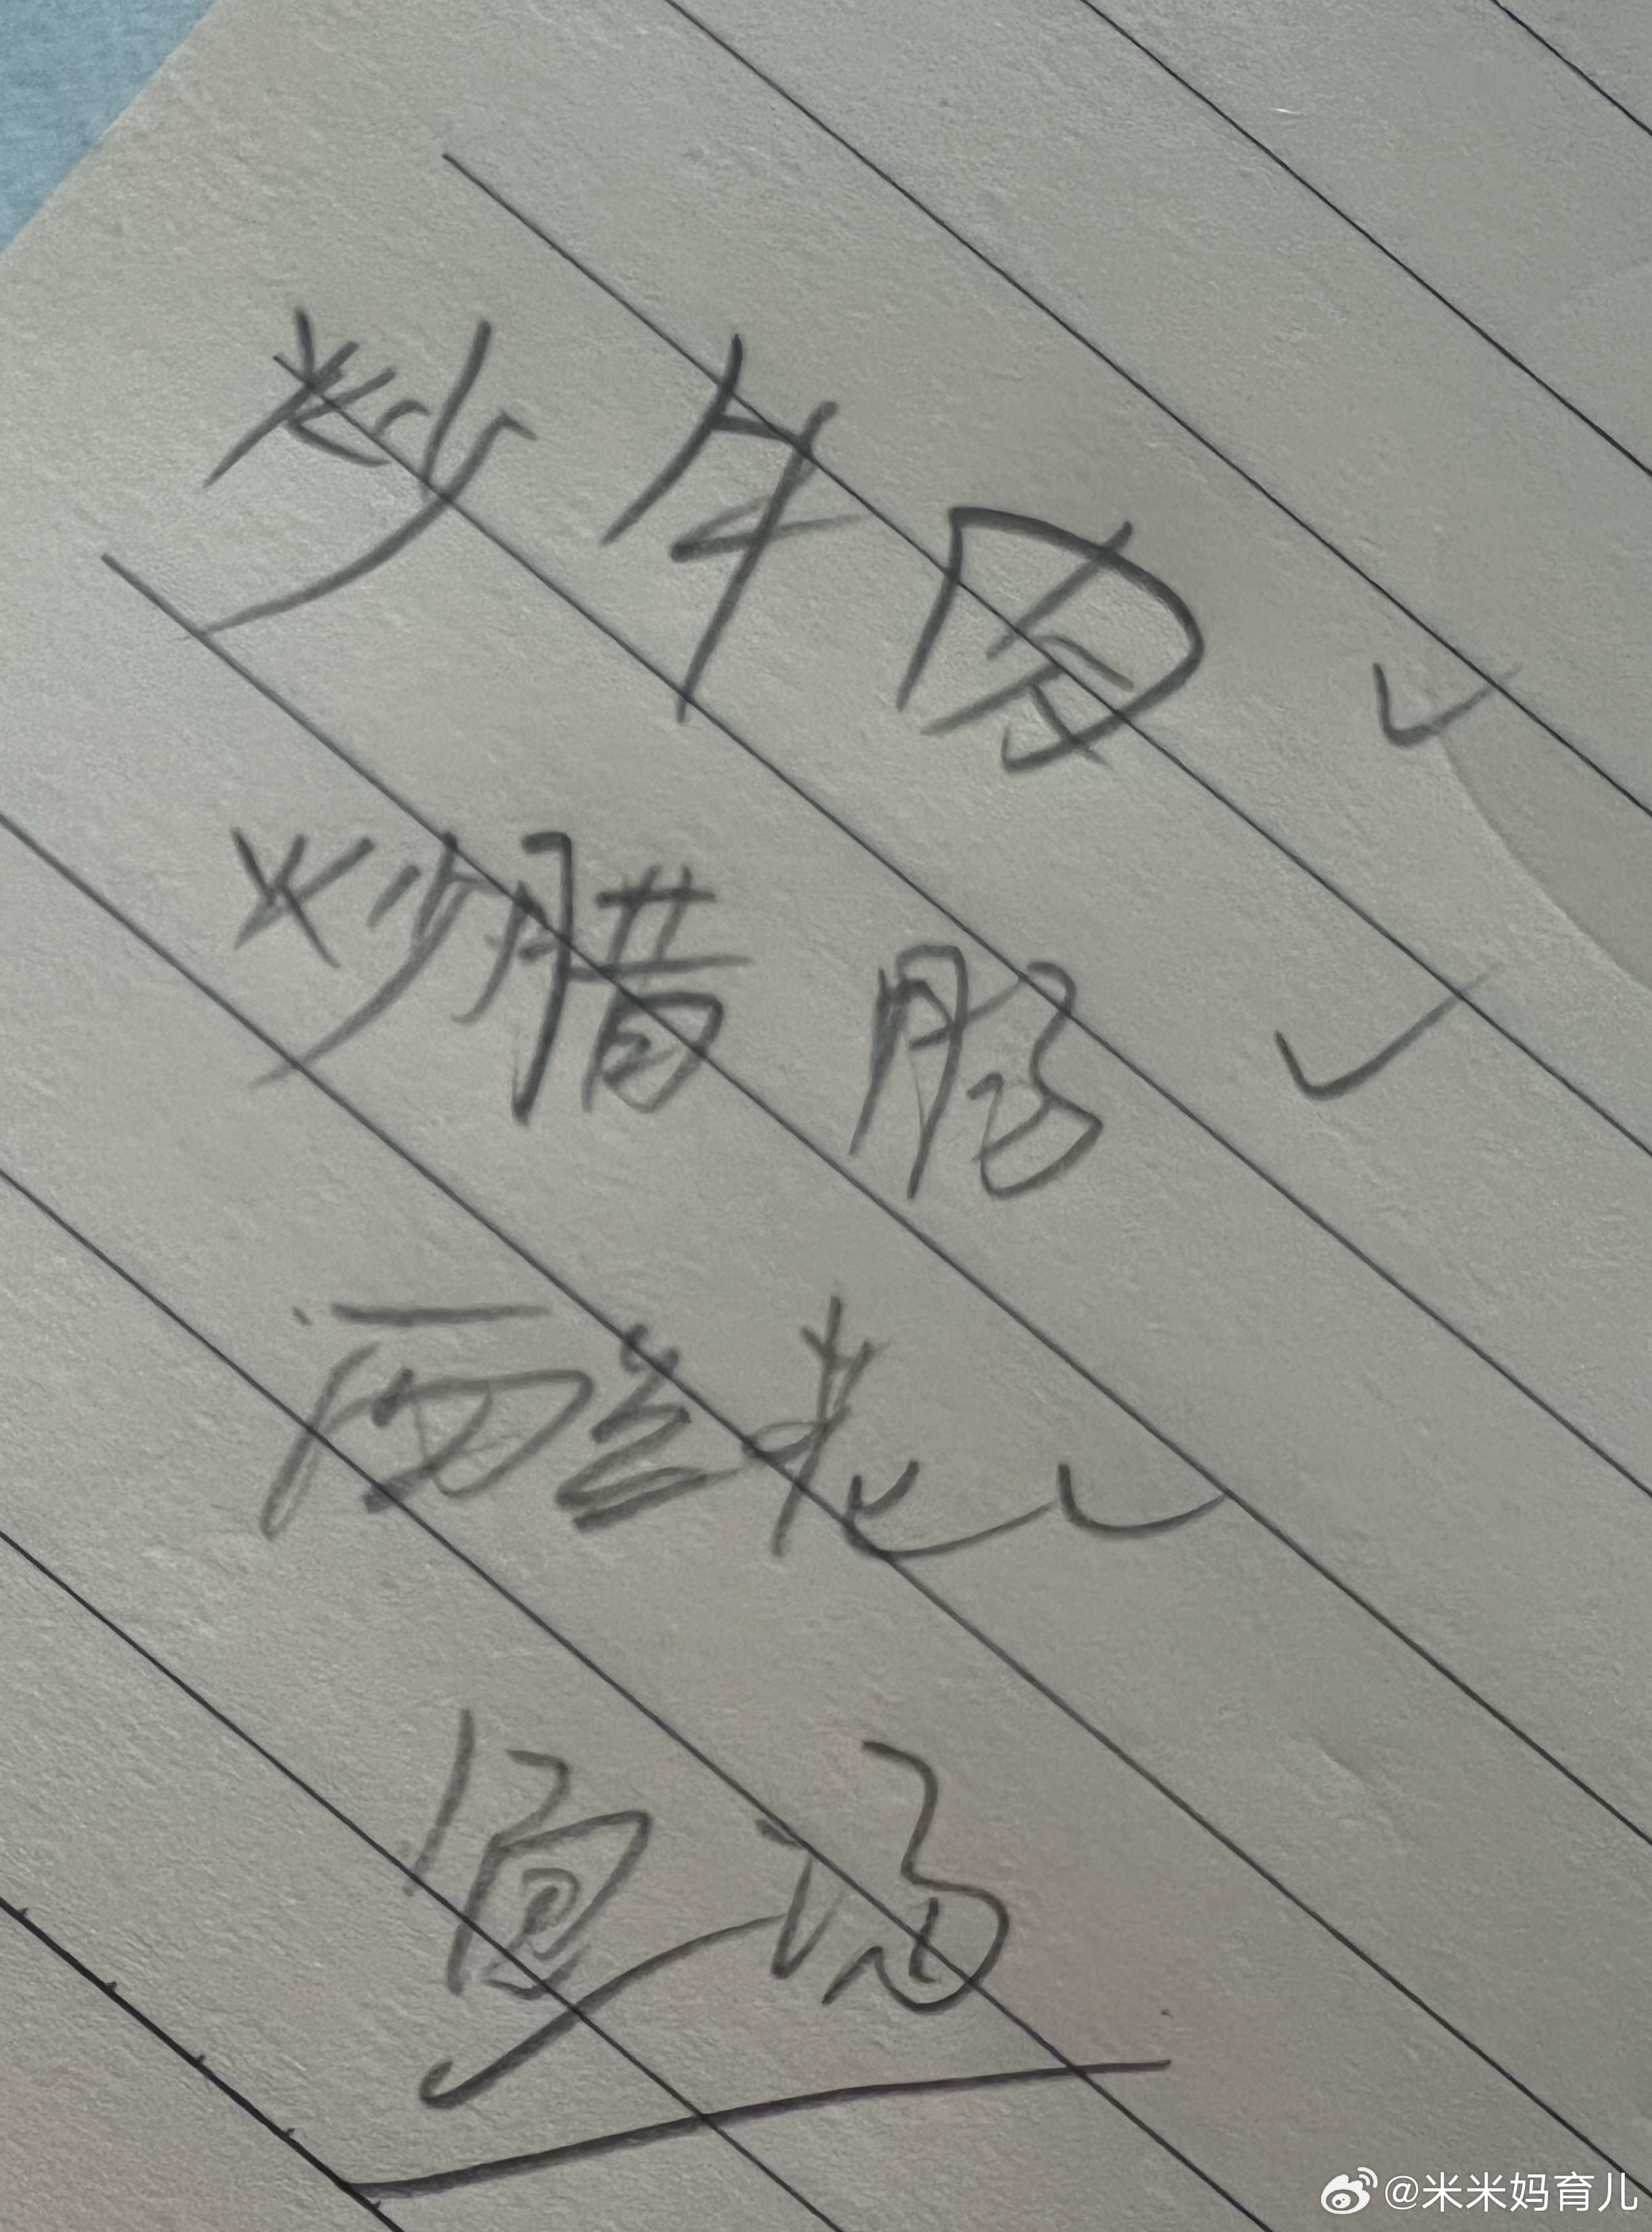 炒牛肉 ✓
炒腊肠 ✓
西兰花 ✓
鱼汤
@米米妈育儿